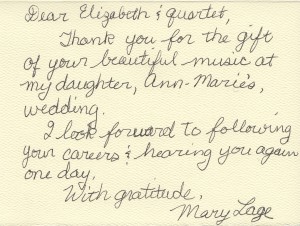 Dear Elizabeth & quartet,
Thank you for the gift
of your beautiful music at
my daughter, Ann-Marie's,
wedding.
I look forward to following
your careers & hearing you again
one day.
With gratitude,
Mary Lage